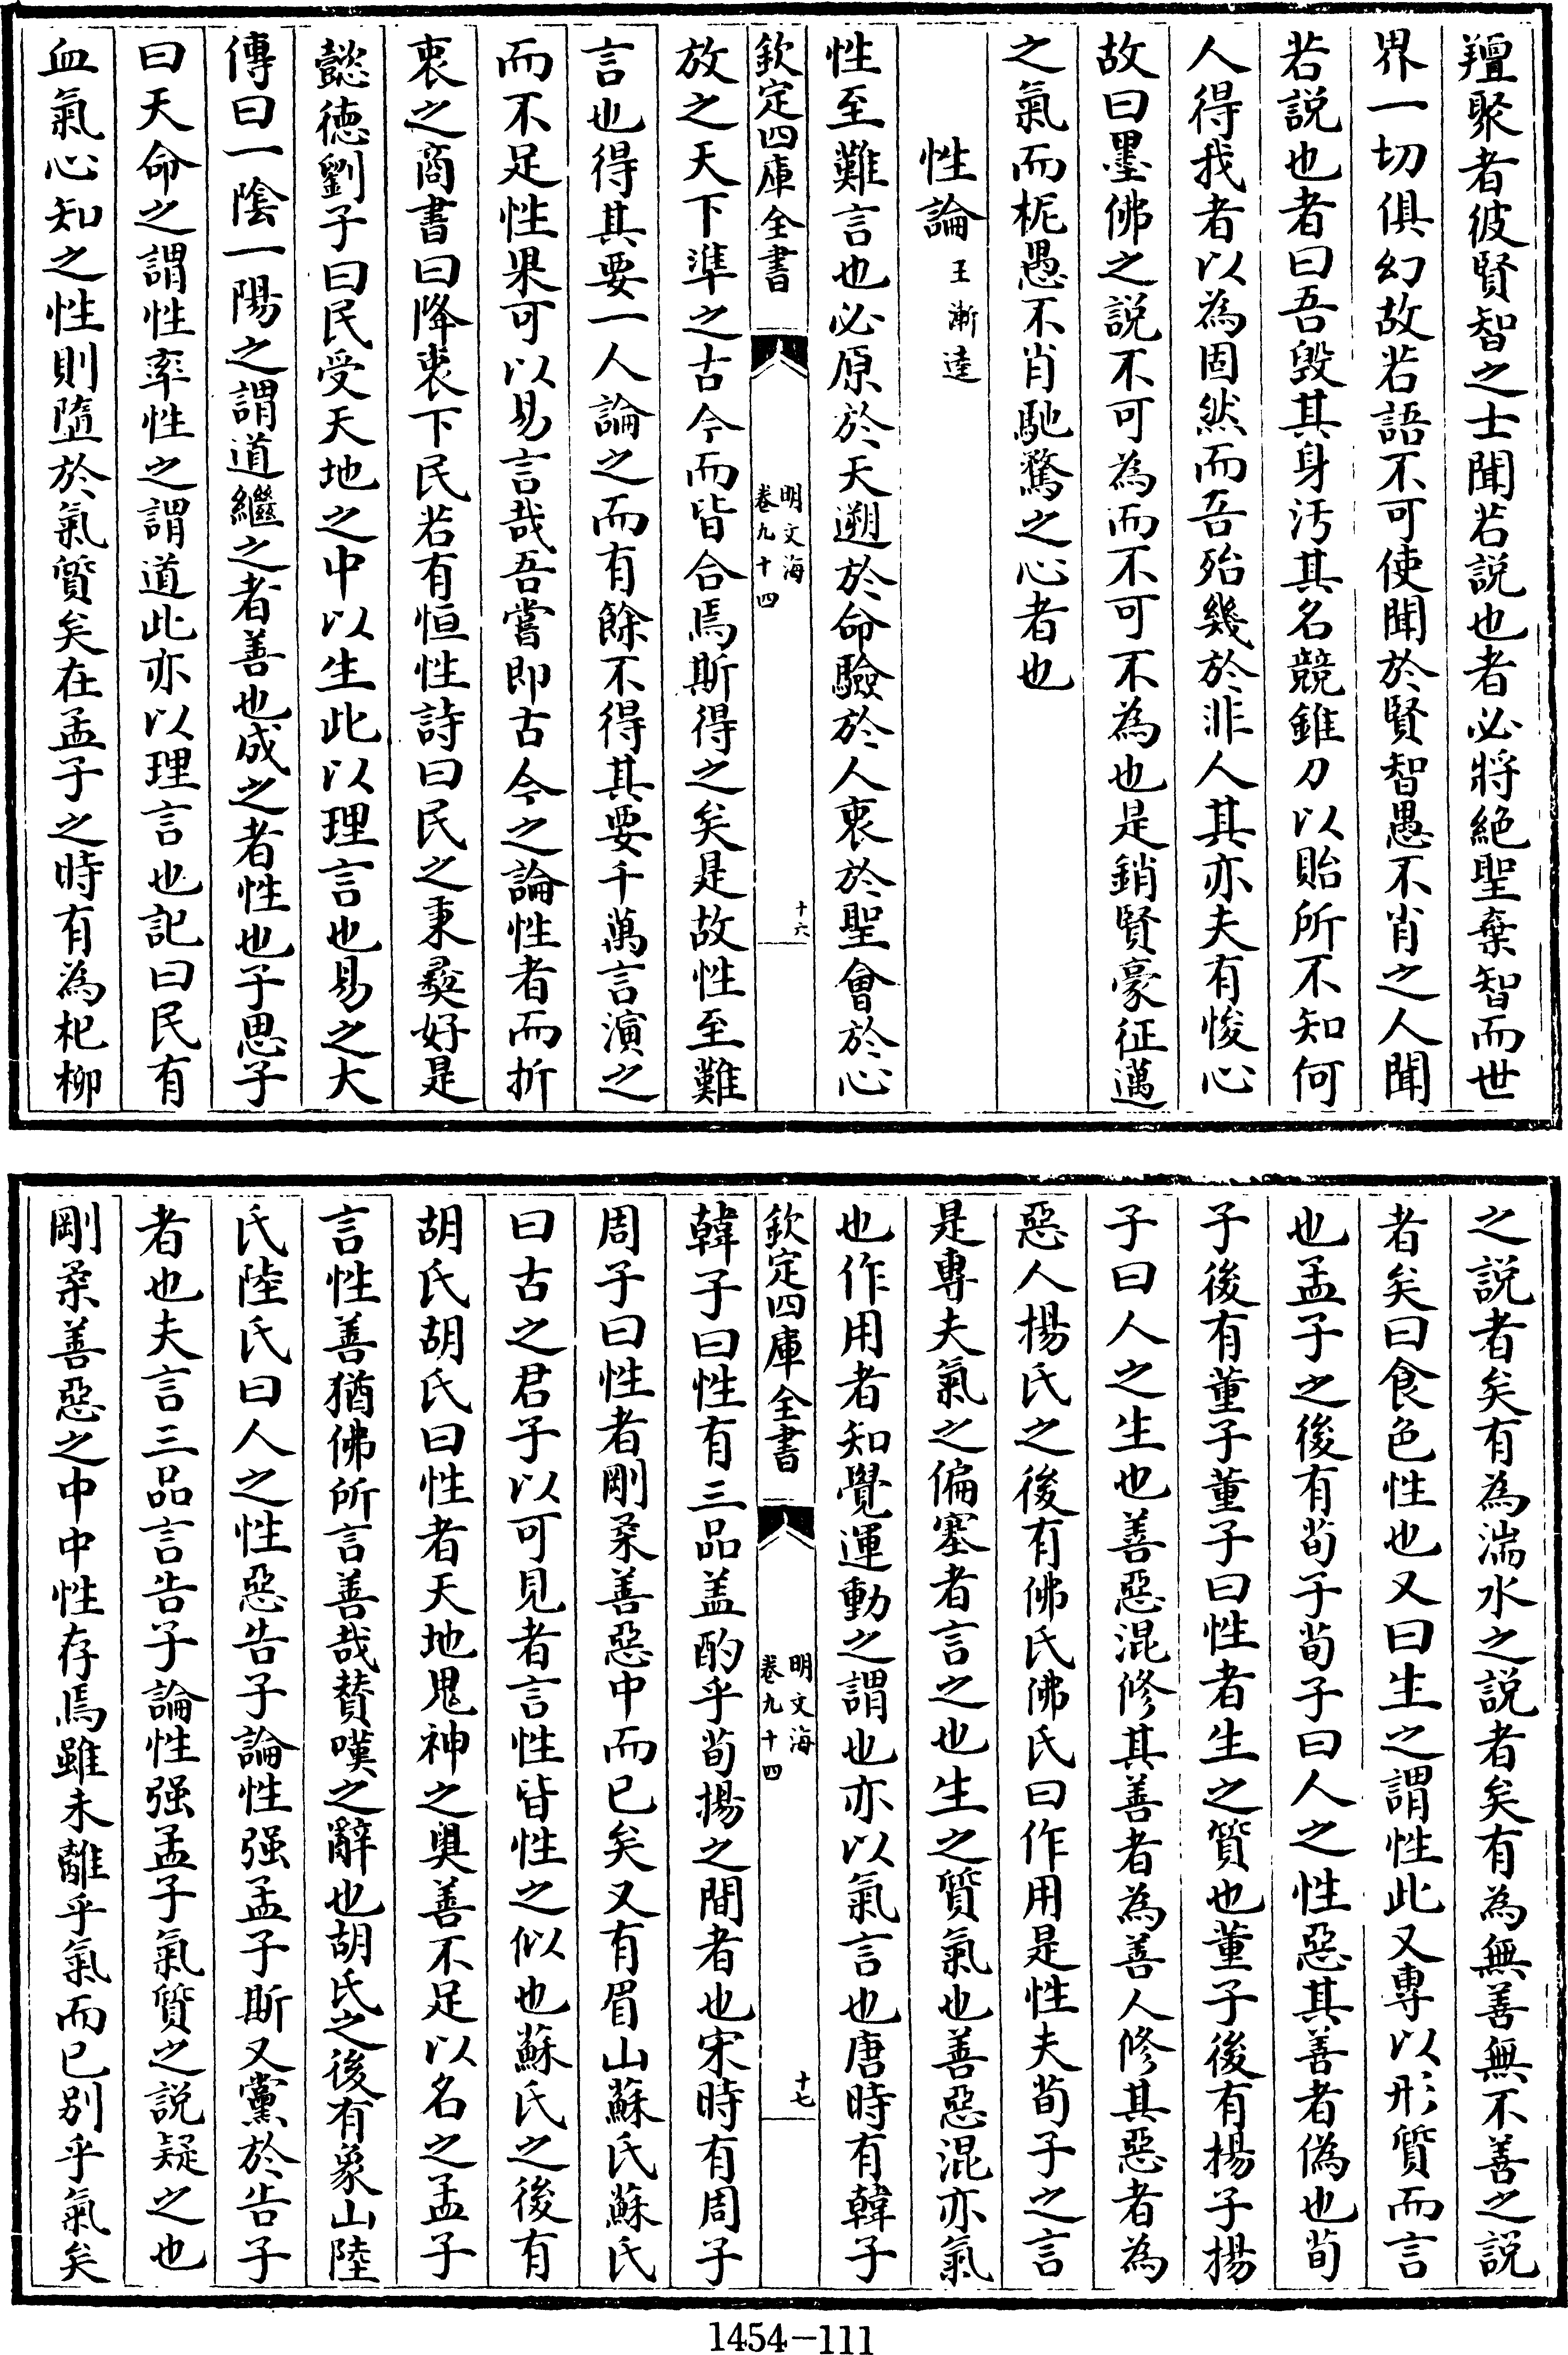 羶聚者彼賢智之士聞若説也者必將絶聖棄智而世
界一切俱幻故若語不可使聞於賢智愚不肖之人聞
若説也者曰吾毀其身汚其名競錐刀以貽所不知何
人得我者以為固然而吾殆幾於非人其亦夫有悛心
故曰墨佛之説不可為而不可不為也是銷賢豪征邁
之氣而柅愚不肖馳騖之心者也
性論王漸逵
性至難言也必原於天遡於命驗於人衷於聖會於心
欽定四庫全書
明文海
卷九十四
十六
放之天下準之古今而皆合焉斯得之矣是故性至難
言也得其要一人論之而有餘不得其要千萬言演之
而不足性果可以易言哉吾嘗即古今之論性者而折
衷之商書曰降衷下民若有恒性詩曰民之秉彛好是
懿德劉子曰民受天地之中以生此以理言也易之大
傳曰一陰一陽之謂道繼之者善也成之者性也子思子
曰天命之謂性率性之謂道此亦以理言也記曰民有
血氣心知之性則墮於氣質矣在孟子之時有為杞柳
之説者矣有為湍水之説者矣有為無善無不善之説
者矣曰食色性也又曰生之謂性此又専以形質而言
也孟子之後有荀子荀子曰人之性惡其善者偽也荀
子後有董子董子曰性者生之質也董子後有揚子揚
子曰人之生也善惡混修其善者為善人修其惡者為
惡人揚氏之後有佛氏佛氏曰作用是性夫荀子之言
是專夫氣之偏塞者言之也生之質氣也善惡混亦氣
也作用者知覺運動之謂也亦以氣言也唐時有韓子
欽定四庫全書
明文海
卷九十四
十七
韓子曰性有三品盖酌乎荀揚之間者也宋時有周子
周子曰性者剛柔善惡中而已矣又有眉山蘇氏蘇氏
曰古之君子以可見者言性皆性之似也蘇氏之後有
胡氏胡氏曰性者天地鬼神之奥善不足以名之孟子
言性善猶佛所言善哉賛嘆之辭也胡氏之後有象山陸
氏陸氏曰人之性惡告子論性强孟子斯又黨於告子
者也夫言三品言告子論性强孟子氣質之説疑之也
剛柔善惡之中中性存焉雖未離乎氣而已别乎氣矣
1454-111